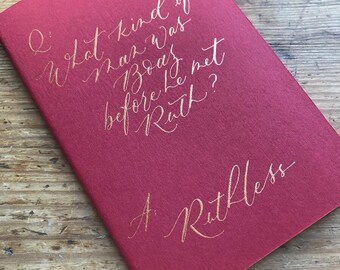 Q:
What kind of
man was
Boaz
before he met
Ruth?
A: Ruthless.